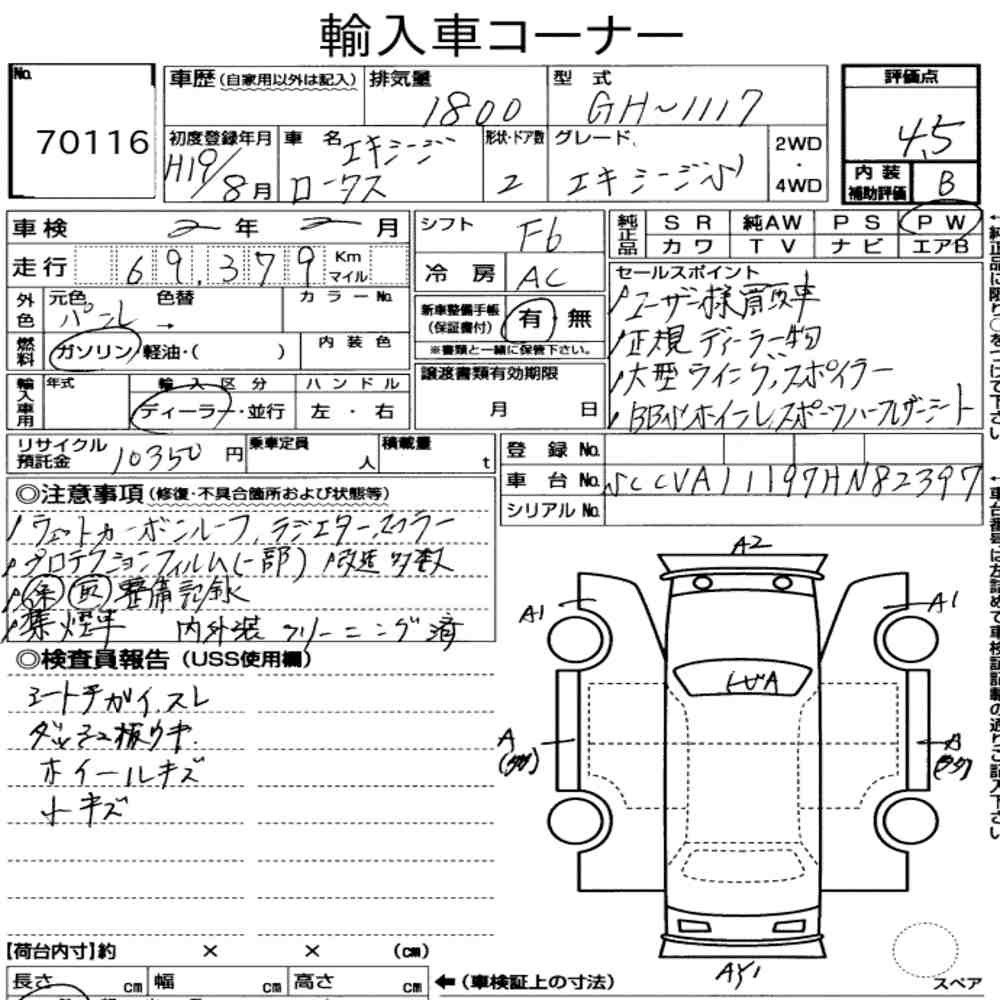 輸入車コーナー
No.
70116
車歴 (自家用以外は記入)
排気量
1800
型 式
GH~1117
評価点
4.5
内装補助評価 B
初度登録年月
H19/8月
車 名
エキシージ
ロータス
形状・ドア数
2
グレード
エキシージS
2WD
・
4WD
車検 2 年 2 月
走行 69,379 Km マイル
外色
元色 パール →
色替
カラーNo.
燃料
ガソリン・軽油・( )
内 装 色
輸入車用
年式
輸 入 区 分
ディーラー・並行
ハ ン ド ル
左 ・ 右
シフト F6
冷 房 AC
新車整備手帳 (保証書付) 有・無
※書類と一緒に保管下さい。
譲渡書類有効期限
月 日
純正品
S R 純AW P S P W
カワ T V ナビ エアB
セールスポイント
ユーザー様買取車
正規ディーラー物
大型ウイング、スポイラー
リサイクル預託金 10350 円
乗車定員 人
積載量 t
登 録 No.
車 台 No. SCCVA11197HN82397
シリアル No.
◎注意事項 (修復・不具合箇所および状態等)
プロテクションフィルム(一部) 改造多数
整備記録
禁煙車 内外装 クリーニング済
◎検査員報告 (USS使用欄)
シート手がイ.スレ
ホイールキズ
小キズ
A2
A1
A1
A
A
トビA
【荷台内寸】約 × × (cm)
長さ cm 幅 cm 高さ cm
←(車検証上の寸法)
スペア
←純正品に限り○をつけて下さい
←車台番号は左詰めで車検証記載の通りご記入下さい